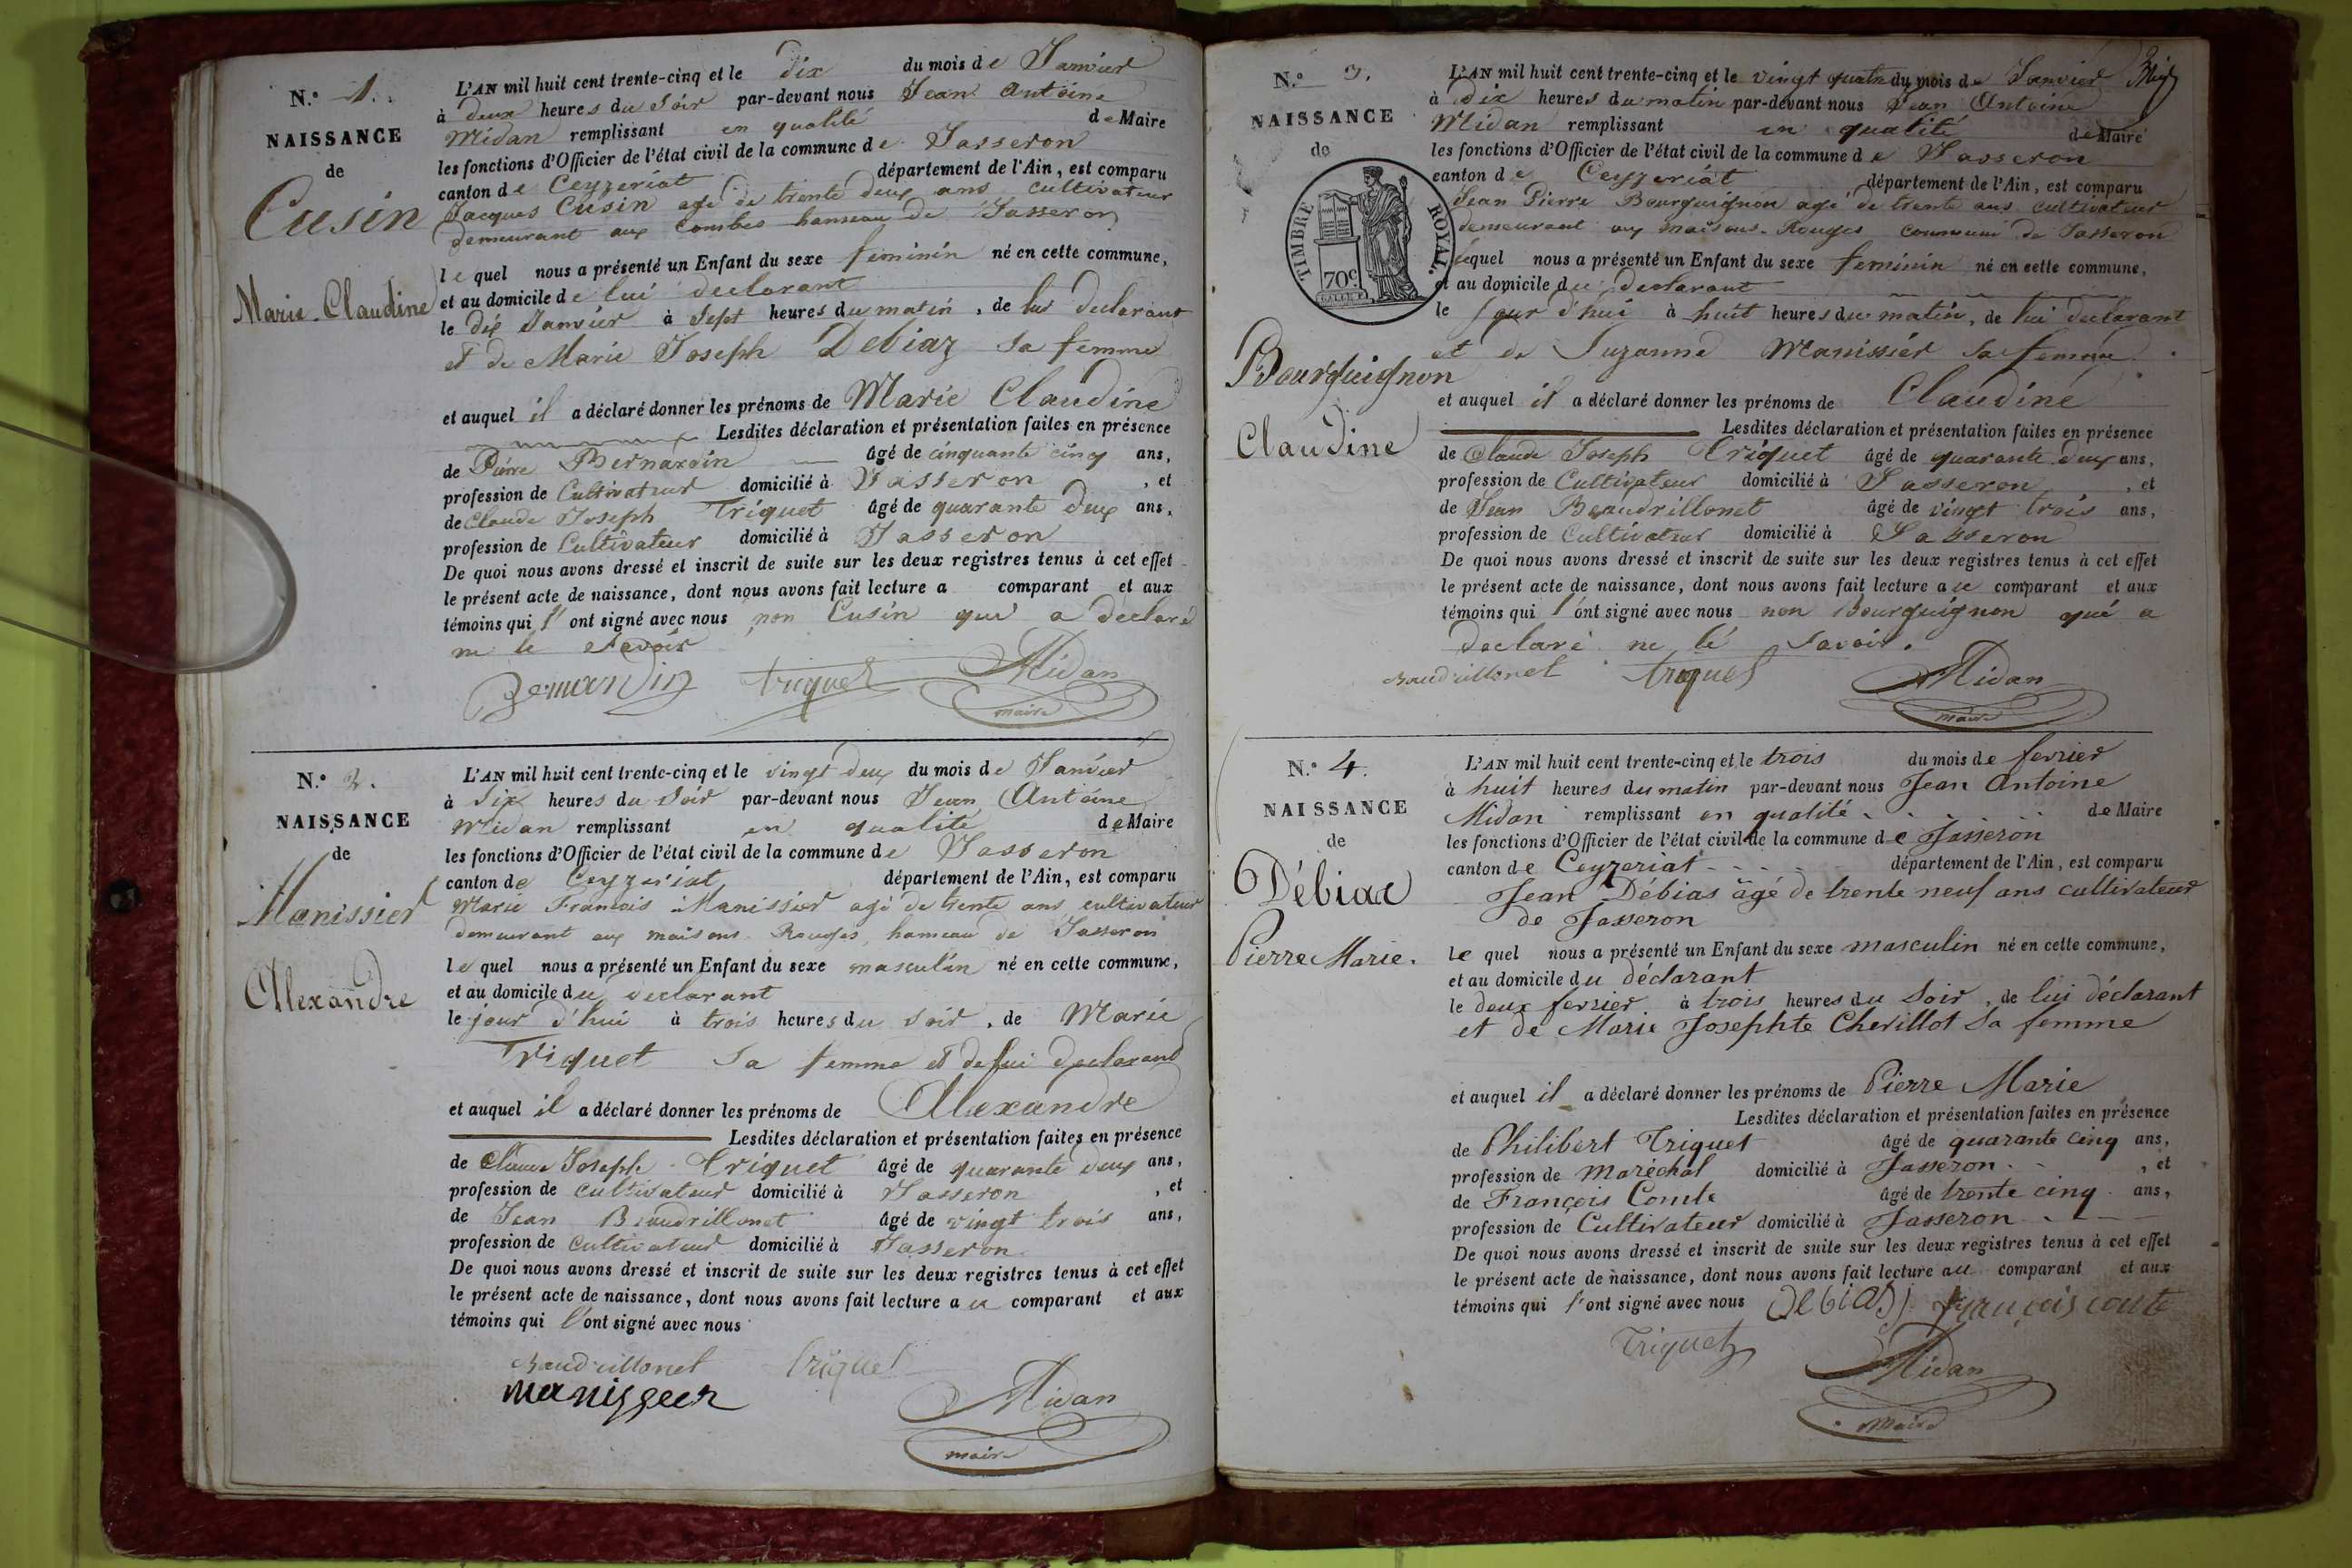 N.º 1.
NAISSANCE
de
Cusin
Marie Claudine
L'AN mil huit cent trente-cinq et le dix du mois de Janvier
à deux heures du Soir par-devant nous Jean Antoine
Midan remplissant en qualité de Maire
les fonctions d'Officier de l'état civil de la commune de Jasseron
canton de Ceyzeriat département de l'Ain, est comparu
Jacques Cusin agé de trente deux ans cultivateur
demeurant aux Combes hameau de Jasseron
le quel nous a présenté un Enfant du sexe feminin né en cette commune,
et au domicile de lui declarant
le dix Janvier à Sept heures du matin, de lui declarant
et de Marie Joseph Debiaz sa femme
et auquel il a déclaré donner les prénoms de Marie Claudine
Lesdites déclaration et présentation faites en présence
de Pierre Bernardin âgé de cinquante cinq ans,
profession de Cultivateur domicilié à Jasseron, et
de Claude Joseph Triquet âgé de quarante deux ans,
profession de Cultivateur domicilié à Jasseron
De quoi nous avons dressé et inscrit de suite sur les deux registres tenus à cet effet
le présent acte de naissance, dont nous avons fait lecture a comparant et aux
témoins qui l'ont signé avec nous non Cusin qui a declaré
ne le Savoir
Bernardin triquet Midan
maire
N.º 2.
NAISSANCE
de
Manissier
Alexandre
L'AN mil huit cent trente-cinq et le vingt deux du mois de Janvier
à Six heures du Soir par-devant nous Jean Antoine
Midan remplissant en qualité de Maire
les fonctions d'Officier de l'état civil de la commune de Jasseron
canton de Ceyzeriat département de l'Ain, est comparu
Marie Francois Manissier agé de trente ans cultivateur
demeurant aux maisons Rouges, hameau de Jasseron
le quel nous a présenté un Enfant du sexe masculin né en cette commune,
et au domicile du declarant
le jour d'hui à trois heures du Soir, de Marie
Triquet sa femme et de lui declarant
et auquel il a déclaré donner les prénoms de Alexandre
Lesdites déclaration et présentation faites en présence
de Claude Joseph Triquet âgé de quarante deux ans,
profession de cultivateur domicilié à Jasseron, et
de Jean Beaudrillonet âgé de vingt trois ans,
profession de cultivateur domicilié à Jasseron
De quoi nous avons dressé et inscrit de suite sur les deux registres tenus à cet effet
le présent acte de naissance, dont nous avons fait lecture au comparant et aux
témoins qui l'ont signé avec nous
Baudrillonet triquet
manisseer Midan
maire
N.º 3.
NAISSANCE
de
TIMBRE ROYAL.
70c
Bourguignon
Claudine
L'AN mil huit cent trente-cinq et le vingt quatre du mois de Janvier
à dix heures du matin par-devant nous Jean Antoine
Midan remplissant en qualité de Maire
les fonctions d'Officier de l'état civil de la commune de Jasseron
canton de Ceyzeriat département de l'Ain, est comparu
Jean Pierre Bourguignon agé de trente ans cultivateur
demeurant aux maisons Rouges commune de Jasseron
lequel nous a présenté un Enfant du sexe feminin né en cette commune,
et au domicile du declarant
le jour d'hui à huit heures du matin, de lui declarant
et de Suzanne Manissier sa femme
et auquel il a déclaré donner les prénoms de Claudine
Lesdites déclaration et présentation faites en présence
de Claude Joseph Triquet âgé de quarante deux ans,
profession de Cultivateur domicilié à Jasseron, et
de Jean Beaudrillonet âgé de vingt trois ans,
profession de Cultivateur domicilié à Jasseron
De quoi nous avons dressé et inscrit de suite sur les deux registres tenus à cet effet
le présent acte de naissance, dont nous avons fait lecture au comparant et aux
témoins qui l'ont signé avec nous non Bourguignon qui a
declaré ne le Savoir.
Baudrillonet triquet Midan
maire
N.º 4.
NAISSANCE
de
Débiaz
Pierre Marie.
L'AN mil huit cent trente-cinq et le trois du mois de fevrier
à huit heures du matin par-devant nous Jean Antoine
Midan remplissant en qualité de Maire
les fonctions d'Officier de l'état civil de la commune de Jasseron
canton de Ceyzeriat département de l'Ain, est comparu
Jean Débias âgé de trente neuf ans cultivateur
de Jasseron
le quel nous a présenté un Enfant du sexe masculin né en cette commune,
et au domicile du déclarant
le deux fevrier à trois heures du Soir, de lui déclarant
et de Marie Josephte Chevillot sa femme
et auquel il a déclaré donner les prénoms de Pierre Marie
Lesdites déclaration et présentation faites en présence
de Philibert Triquet âgé de quarante cinq ans,
profession de Maréchal domicilié à Jasseron, et
de François Comte âgé de trente cinq ans,
profession de Cultivateur domicilié à Jasseron
De quoi nous avons dressé et inscrit de suite sur les deux registres tenus à cet effet
le présent acte de naissance, dont nous avons fait lecture au comparant et aux
témoins qui l'ont signé avec nous Debias françois conte
Triquet Midan
Maire